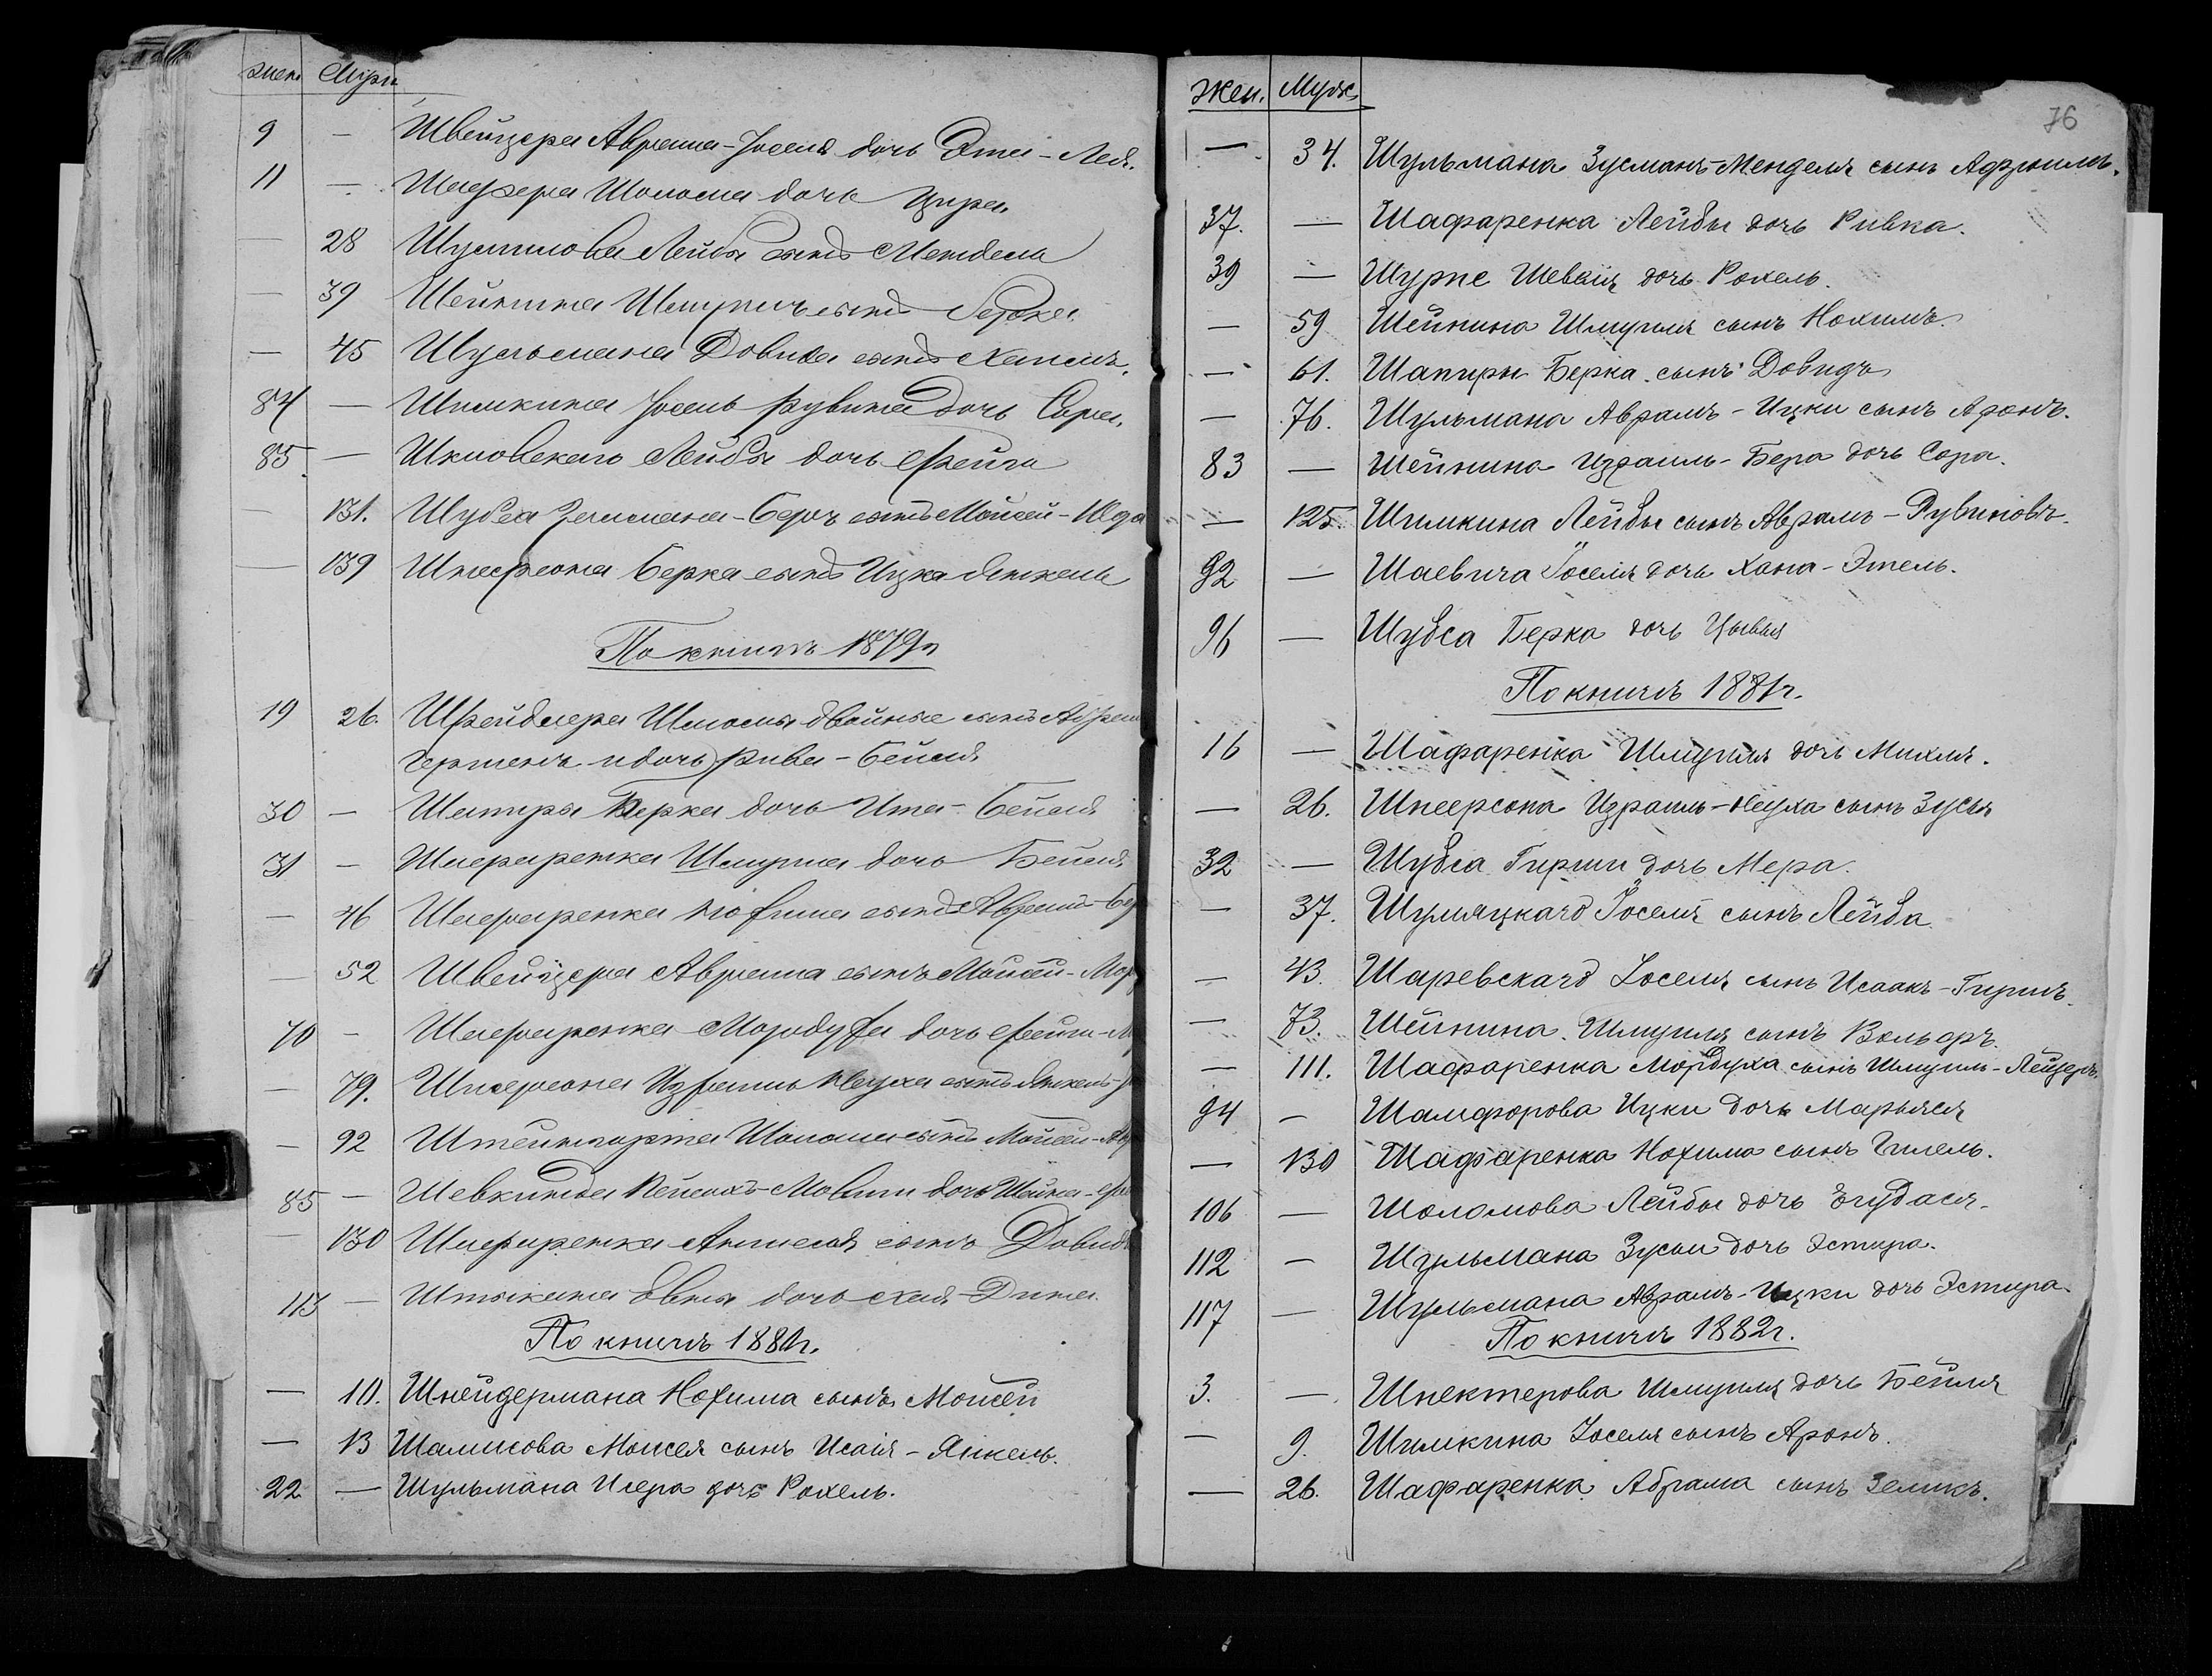 жен. Муж
9 — Швейцера Абрама-Іоселя дочь Эта-Лея.
11 — Шафера Шолома дочь Цира.
— 28 Шумилова Лейбы сынъ Мендель
— 39 Шейнина Шмуилъ сынъ Берка.
— 45 Шульмана Довида сынъ Хаимъ.
84 — Шимкина Іосель Рувина дочь Сора.
85 — Шкловскаго Лейбы дочь Фейга
— 131. Шубса Залмана-Беръ сынъ Мойсей-Юда
— 139 Шнеерсона Берка сынъ Ицка Янкель
По книгѣ 1879г
19 26. Шрейдлера Шлиомы двойные сынъ Абрам
Герценъ и дочь Рива-Бейля
30 — Шапиры Берка дочь Ита-Бейля
31 — Шафаренка Шмуила дочь Бейля
— 46 Шафаренка Нохима сынъ Абрамъ-Бер
— 52 Швейцера Абрама сынъ Мойсей-Мор
70 — Шафаренка Мордуха дочь Фейга-
— 79. Шнеерсона Израиль Неуха сынъ Янкель-
— 92 Штейнгарта Шолома сынъ Мойсей-
85 — Шевкинда Пейсахъ-Мовши дочь Шейна-
— 130 Шафаренка Аншеля сынъ Довидъ
113 — Штыкана Евны дочь Хая-Дина
По книгѣ 1880г.
— 10. Шнейдермана Нохима сынъ Мойсей
— 13 Шалисова Моисея сынъ Исаія-Янкель.
22 — Шульмана Исера дочь Рохель.
76
Жен. Муж
— 34. Шульмана Зусманъ-Менделя сынъ
37. — Шафаренка Лейбы дочь Ривка.
39 — Шурпе Шевеля дочь Рохель.
— 59 Шейнина Шмуиля сынъ Нохимъ.
— 61. Шапиры Берка сынъ Довидъ
— 76. Шульмана Абрамъ-Ицки сынъ Аронъ.
83 — Шейнина Израиль-Бера дочь Сора.
— 125. Шимкина Лейбы сынъ Абрамъ-Рувиновъ.
92 — Шаевича Іоселя дочь Хана-Этель.
96 — Шубса Берка дочь Цывья
По книгѣ 1881г.
16 — Шафаренка Шмуиля дочь Михля.
— 26. Шнеерсона Израиль-Неуха сынъ Зусья
32 — Шубса Гирши дочь Мера.
— 37. Шумяцкаго Іоселя сынъ Лейба
— 43. Шаревскаго Іоселя сынъ Исаакъ-Гиршъ.
— 73. Шейнина Шмуиля сынъ Вольфъ.
— 111. Шафаренка Мордуха сынъ Шмуиль-Лейзеръ.
94 — Шамфорова Ицки дочь Марьяся
— 130 Шафаренка Нохима сынъ Гилель.
106 — Шоломова Лейбы дочь Егудася.
112 — Шульмана Зусьи дочь Эстира.
117 — Шульмана Абрамъ-Ицки дочь Эстира.
По книгѣ 1882г.
3. — Шпектерова Шмуиля дочь Бейля
— 9. Шимкина Іоселя сынъ Аронъ.
— 26. Шафаренка Абрама сынъ Зеликъ.